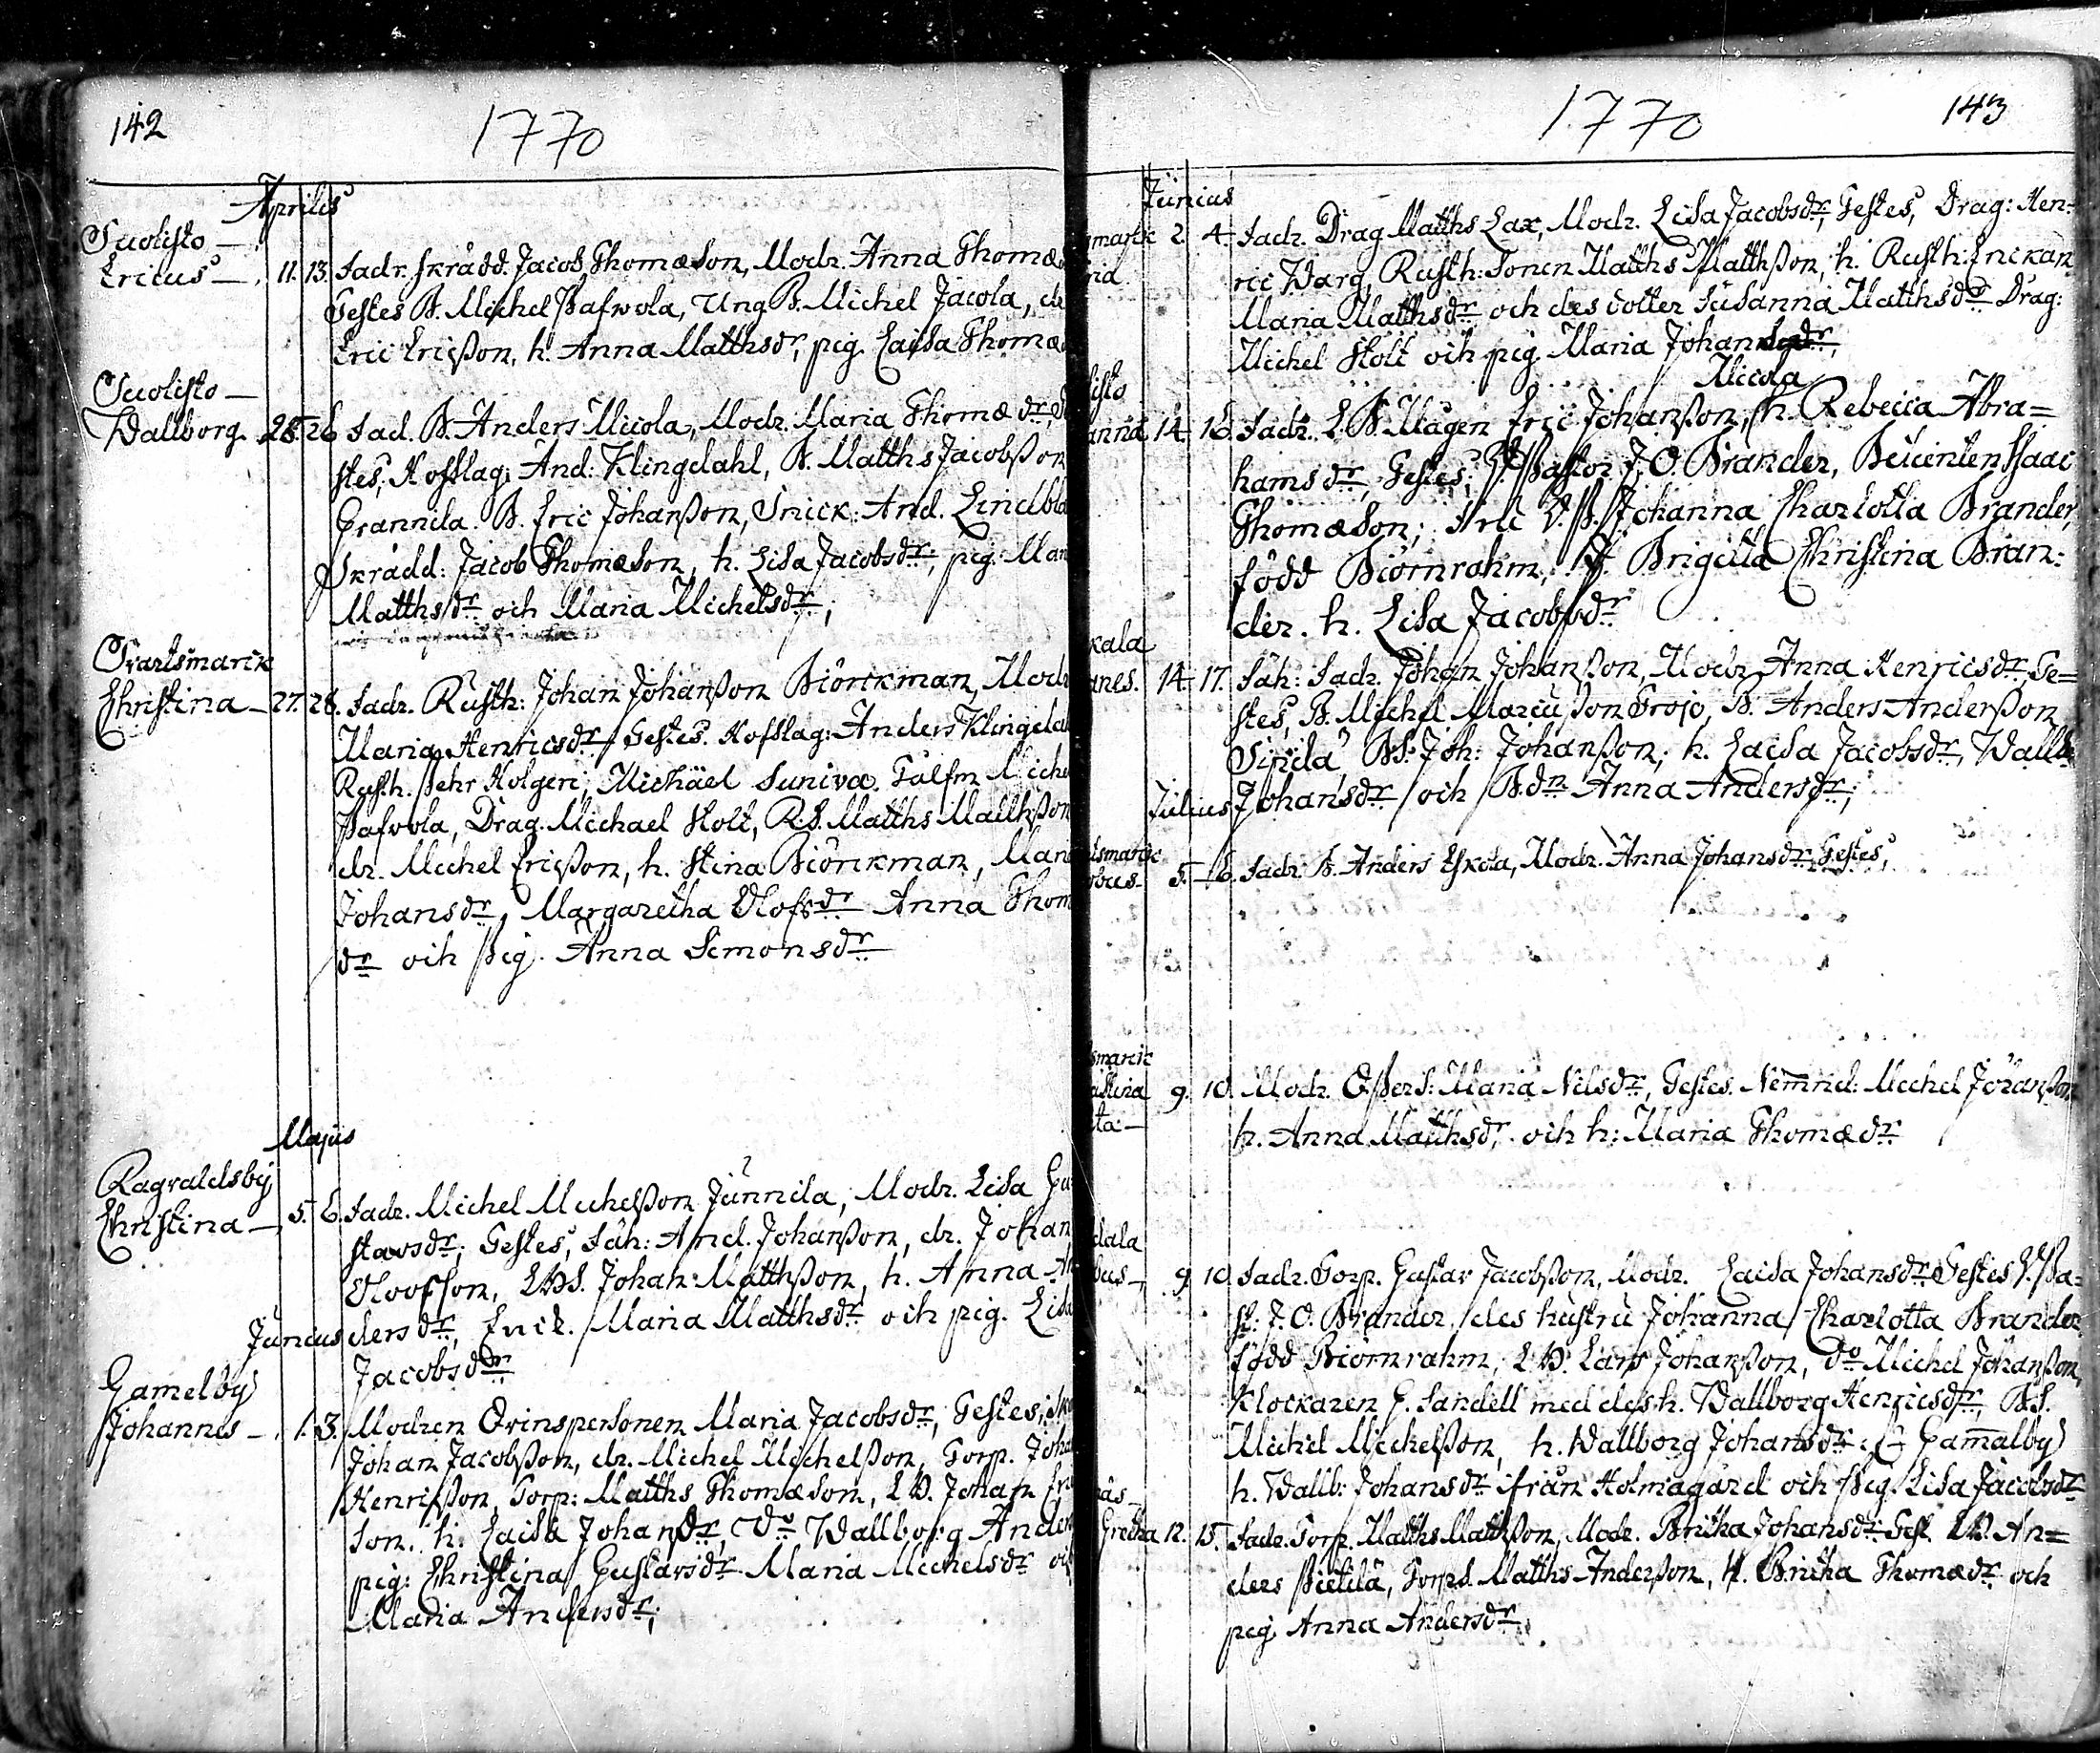 142
1770
Aprilis
Suolisto —
Ericus — 11. 13. Fadr. skrädd. Jacob Thomæson, Modr. Anna Thomæ
Testes B. Michel Pafvola, Ung B. Michel Jacola, dr.
Eric Ericsson, h. Anna Matthsdr, pig. Caisa Thomæ
Suolisto —
Wallborg. 25. 26 Fad. B. Anders Micola, Modr. Maria Thomædr,
stes, Hofslag: And: Klingdahl, B. Matths Jacobsson
Grannila. B. Eric Johansson, Snick: And. Lindbla
Skrädd: Jacob Thomæson, h. Lisa Jacobsdr, pig: Mar
Matthsdr och Maria Michelsdr;
Svartsmarck
Christina — 27. 28. Fadr. Rusth: Johan Johansson Biörckman, Modr
Maria Henricsdr, Testes. Hofslag: Anders Klingdal
Rusth. Pehr Holgeri, Michäel Suniva. Tålfm Miche
Pafvola, Drag. Michael Holt, R.S. Matths Matthsson
dr. Michel Ericsson, h. Stina Biörckman, Mar
Johansdr, Margaretha Olofsdr Anna Thom
dr och Pig. Anna Simonsdr
Majus
Ragvaldsby
Christina — 5. 6. Fadr. Michel Michelsson Junnila, Modr. Lisa Gu
stavsdr; Testes, Såh: And. Johansson, dr. Johan
Olofsson, LBS. Johan Matthsson, h. Anna An
Junius dersdr, Enck. Maria Matthsdr och pig. Lisa
Jacobsdr
Gamelby
Johannes — 1. 3. Modren Qvinspersonen Maria Jacobsdr, Testes,
Johan Jacobsson, dr. Michel Michelsson, Torp. Joha
Henricsson, Torp: Matths Thomæson, LB. Johan Eri
son. h. Caisa Johansdr, Do Wallborg Ander
pig: Christina Gustavsdr Maria Michelsdr och
Maria Andersdr;
1770
143
Junius
smarck 2. 4. Fadr. Drag Matths Lax, Modr. Lisa Jacobsdr, Testes, Drag: Hen-
ric Warg, Rusth: Sonen Matths Matthsson, h. Rusth: Enckan
Maria Matthsdr och des dotter Susanna Matthsdr Drag:
Michel Holt och pig. Maria Johansdr;
Micola
listo
anna 14. 16. Fadr. L.B. Mågen Eric Johansson, h. Rebecca Abra=
hamsdr, Testes, V. Pastor J. O. Brander, Beuenten Isaac
Thomæson; Fru V.P. Johanna Charlotta Brander,
född Biörnrahm, J. Brigitta Christina Bran-
der. h. Lisa Jacobsdr
kala
anes. 14. 17. Såh: Fadr. Johan Johansson, Modr Anna Henricsdr, Te=
stes, B. Michel Marcusson Trojo, B. Anders Andersson
Sipila, BS. Joh: Johansson; h. Caisa Jacobsdr, Wallb.
Julius Johansdr och B.dr. Anna Andersdr;
tsmarck
obus — 5. 6. Fadr. B. Anders Eskola, Modr. Anna Johansdr, Testes,
smarck
istina 9. 10. Modr. Qspers: Maria Nilsdr, Testes. Nemnd: Michel Johansson
ta — h. Anna Matthsdr och h: Maria Thomædr
dala
bus — 9. 10. Fadr. Torp. Gustav Jacobsson, Modr. Caisa Johansdr, Testes V. Pa-
st: J. O. Brander, des hustru Johanna Charlotta Brander
född Biörnrahm, LB. Lars Johansson, Do Michel Johansson,
Klockaren G. Sandell med des h. Wallborg Henricsdr, BS.
Michel Michelsson, h. Wallborg Johansdr Gamalby
h. Wallb: Johansdr ifrån Holmagård och Pig. Lisa Jacobsdr
näs —
Gretha 12. 15. Fadr. Torp. Matths Matthsson, Modr. Britha Johansdr Test. LB. An=
ders Pietilä, Torps. Matths Andersson, h. Britha Thomædr och
pig. Anna Andersdr;